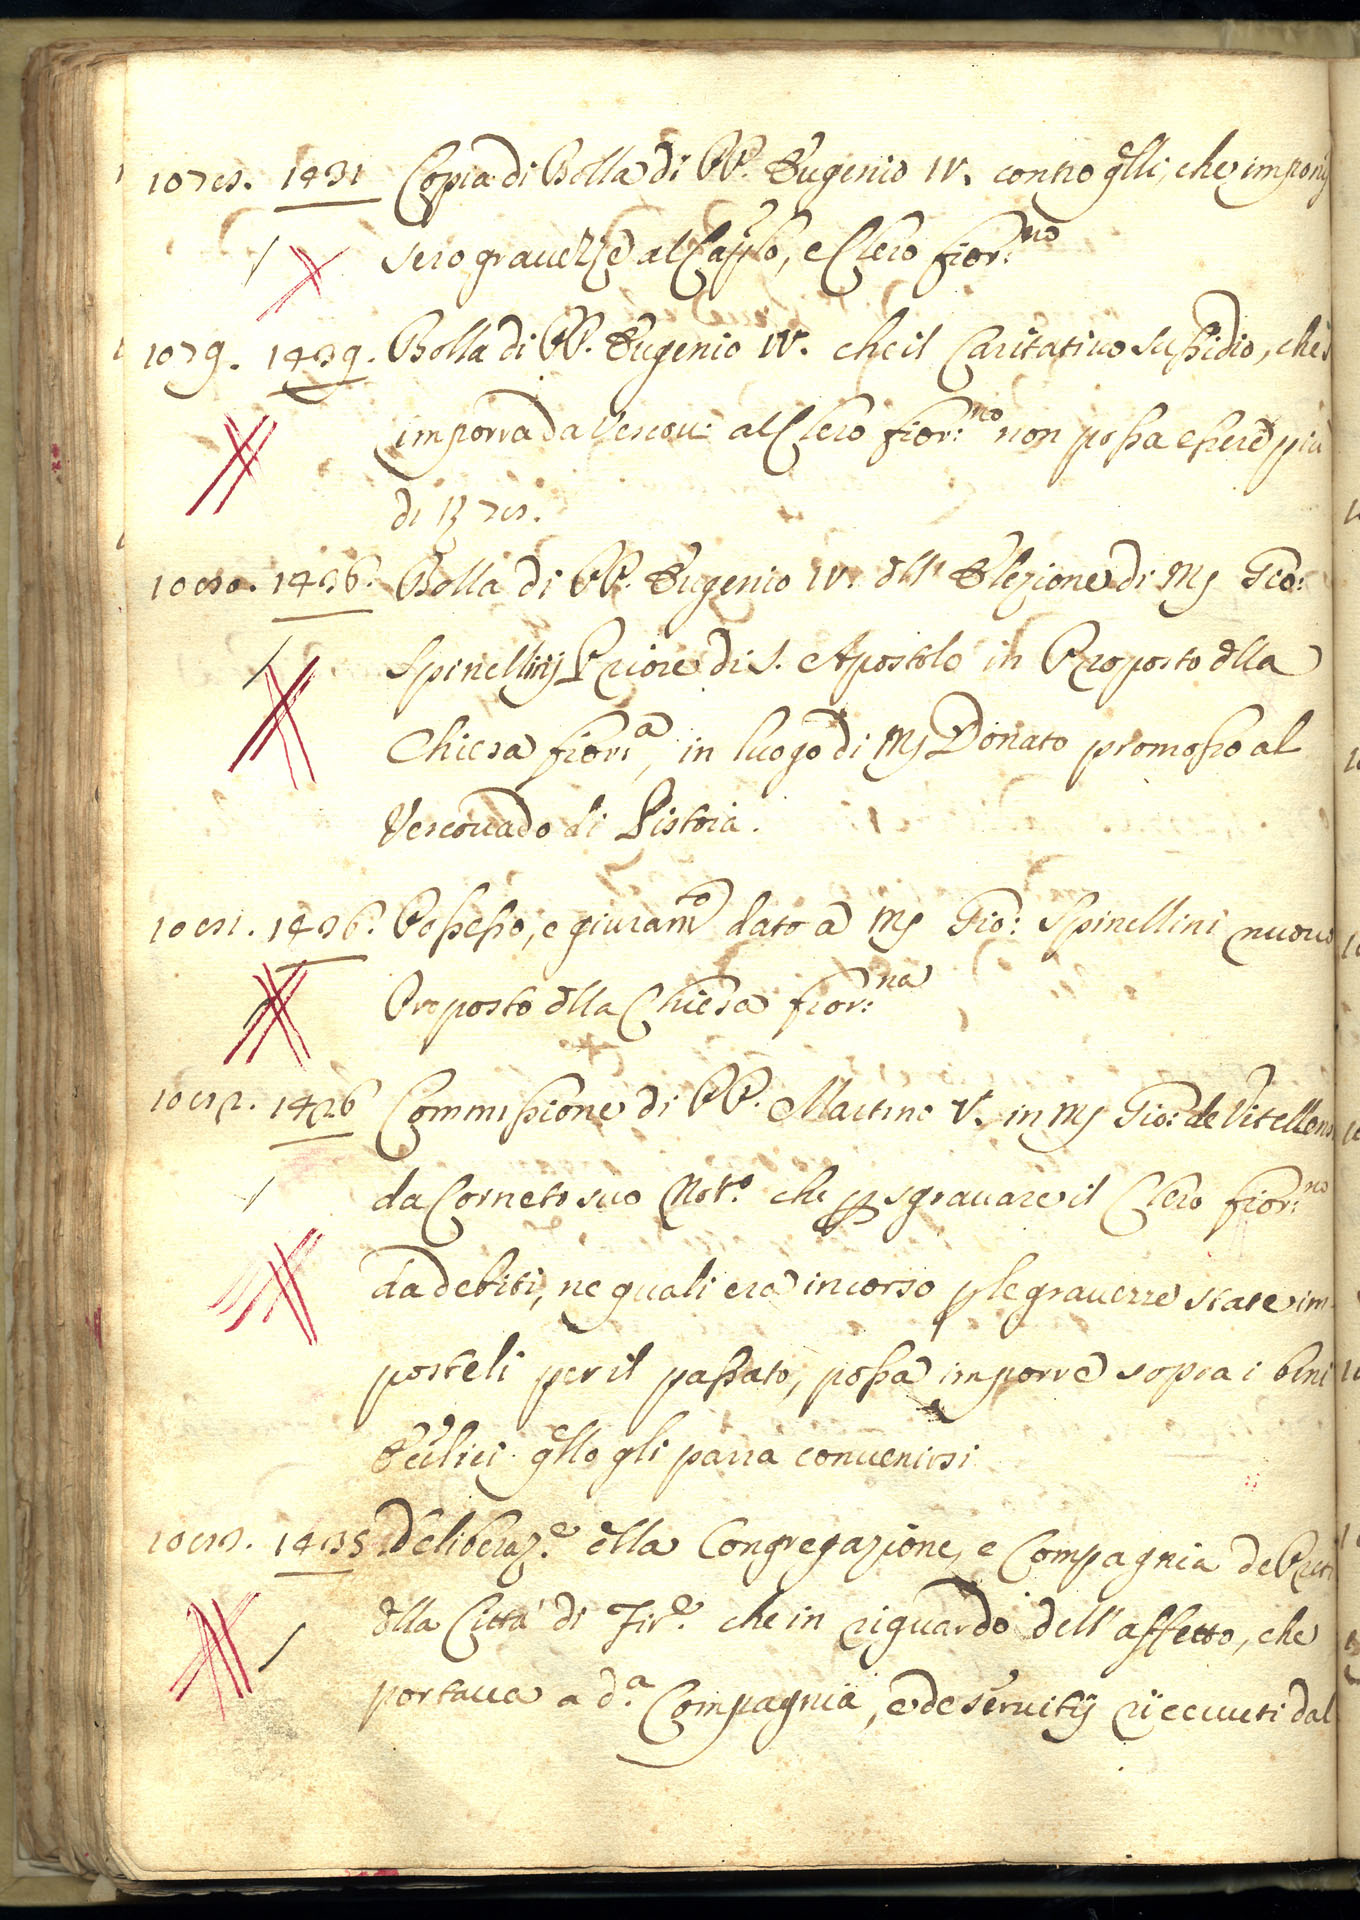 1078. 1431 Copia di Bolla di PP. Eugenio IV. contro qlli, che impony
sero gravezze al Caplo, e Clero fior:no
1079. 1439. Bolla di PP. Eugenio IV. che il Caritativo sussidio, che s
imporrà da Vescovi al Clero fior:no non possa essere più
di
1080. 1436. Bolla di PP. Eugenio IV. dll' Elezione di Ms Gio:
Spinellinij Priore di S. Apostolo in Proposto dlla
Chiesa fior:a, in luogo di Ms Donato promosso al
Vescovado di Pistoia.
1081. 1436. Possesso, e giuramto dato a Ms Gio: Spinellini nuovo
Proposto dlla Chiesa fior:na
1082. 1426 Commissione di PP. Martino V. in Ms Gio: de Vitellens
da Corneto suo Not.o che p sgravare il Clero fior:no
da debiti, ne quali era incorso p le gravezze state im
posteli per il passato, possa imporre sopra i beni
qllo gli parra convenirsi
1083. 1435 Deliberaz.e dlla Congregazione, e Compagnia de Preti
dlla Città di Fir.e che in riguardo dell' affetto, che
portava a d.a Compagnia, e de servitij riceuuti dal